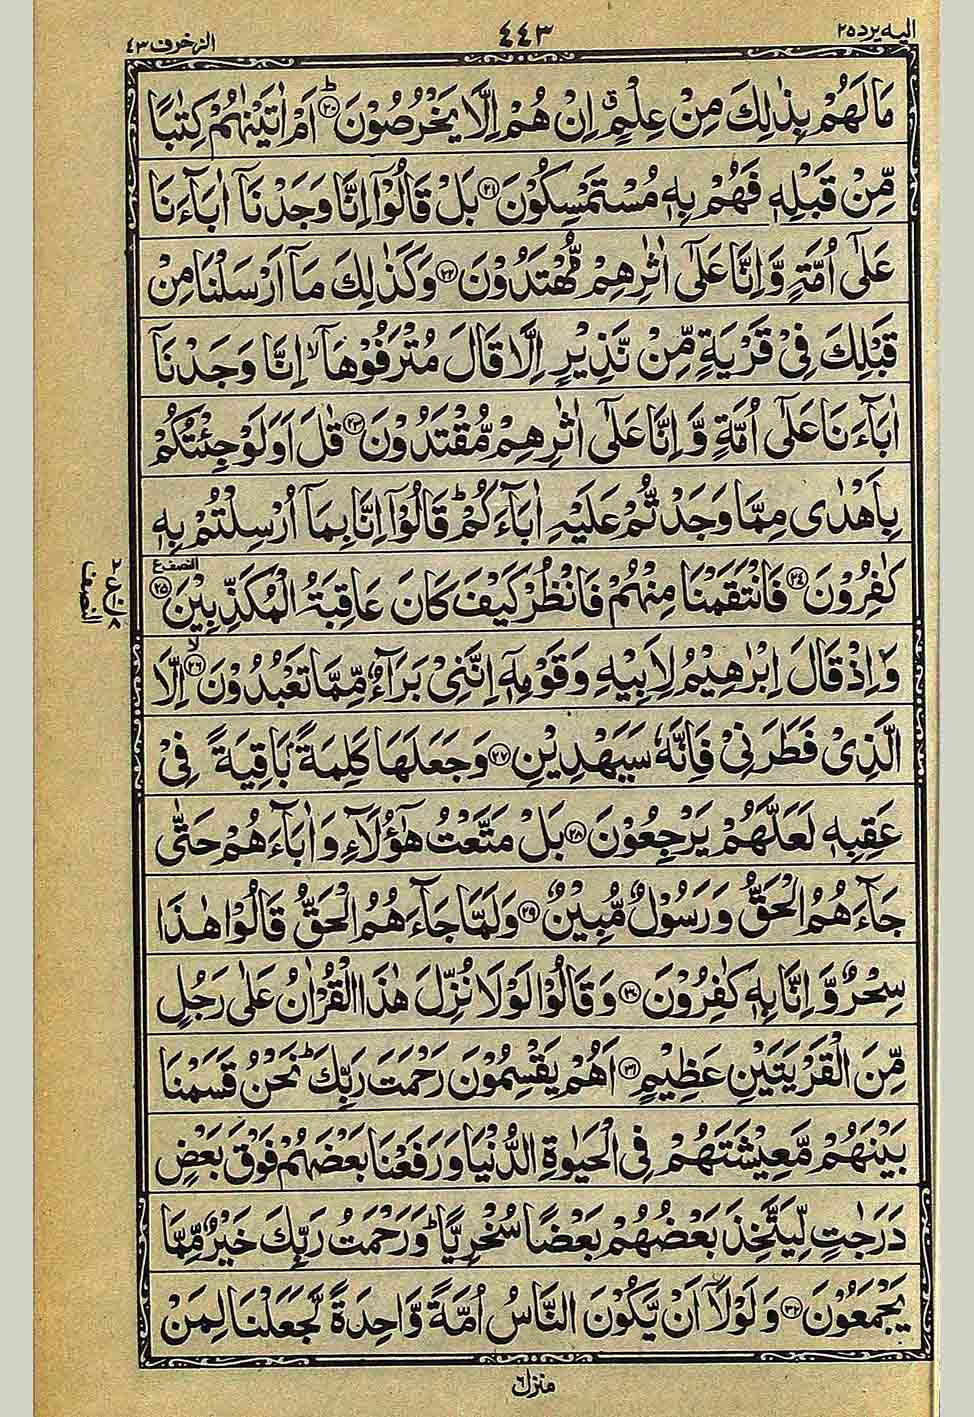 اليه يرد ٢٥
٤٤٣
الزخرف ٤٣
مَا لَهُمْ بِذٰلِكَ مِنْ عِلْمٍ ۗ اِنْ هُمْ اِلَّا يَخْرُصُوْنَ ۝٢٠ؕ اَمْ اٰتَيْنٰهُمْ كِتٰبًا
مِّنْ قَبْلِهٖ فَهُمْ بِهٖ مُسْتَمْسِكُوْنَ ۝٢١ بَلْ قَالُوْٓا اِنَّا وَجَدْنَآ اٰبَآءَنَا
عَلٰٓى اُمَّةٍ وَّ اِنَّا عَلٰٓى اٰثٰرِهِمْ مُّهْتَدُوْنَ ۝٢٢ وَكَذٰلِكَ مَآ اَرْسَلْنَا مِنْ
قَبْلِكَ فِيْ قَرْيَةٍ مِّنْ نَّذِيْرٍ اِلَّا قَالَ مُتْرَفُوْهَآ ۙ اِنَّا وَجَدْنَآ
اٰبَآءَنَا عَلٰٓى اُمَّةٍ وَّ اِنَّا عَلٰٓى اٰثٰرِهِمْ مُّقْتَدُوْنَ ۝٢٣ قٰلَ اَوَلَوْ جِئْتُكُمْ
بِاَهْدٰى مِمَّا وَجَدْتُّمْ عَلَيْهِ اٰبَآءَكُمْ ؕ قَالُوْٓا اِنَّا بِمَآ اُرْسِلْتُمْ بِهٖ
كٰفِرُوْنَ ۝٢٤ فَانْتَقَمْنَا مِنْهُمْ فَانْظُرْ كَيْفَ كَانَ عَاقِبَةُ الْمُكَذِّبِيْنَ ۝٢٥
النصف ع
النصف
وَ اِذْ قَالَ اِبْرٰهِيْمُ لِاَبِيْهِ وَقَوْمِهٖٓ اِنَّنِيْ بَرَآءٌ مِّمَّا تَعْبُدُوْنَ ۝٢٦ۙ اِلَّا
الَّذِيْ فَطَرَنِيْ فَاِنَّهٗ سَيَهْدِيْنِ ۝٢٧ وَجَعَلَهَا كَلِمَةًۢ بَاقِيَةً فِيْ
عَقِبِهٖ لَعَلَّهُمْ يَرْجِعُوْنَ ۝٢٨ بَلْ مَتَّعْتُ هٰٓؤُلَآءِ وَ اٰبَآءَهُمْ حَتّٰى
جَآءَهُمُ الْحَقُّ وَ رَسُوْلٌ مُّبِيْنٌ ۝٢٩ وَلَمَّا جَآءَهُمُ الْحَقُّ قَالُوْا هٰذَا
سِحْرٌ وَّ اِنَّا بِهٖ كٰفِرُوْنَ ۝٣٠ وَقَالُوْا لَوْلَا نُزِّلَ هٰذَا الْقُرْاٰنُ عَلٰى رَجُلٍ
مِّنَ الْقَرْيَتَيْنِ عَظِيْمٍ ۝٣١ اَهُمْ يَقْسِمُوْنَ رَحْمَتَ رَبِّكَ ؕ نَحْنُ قَسَمْنَا
بَيْنَهُمْ مَّعِيْشَتَهُمْ فِي الْحَيٰوةِ الدُّنْيَا وَ رَفَعْنَا بَعْضَهُمْ فَوْقَ بَعْضٍ
دَرَجٰتٍ لِّيَتَّخِذَ بَعْضُهُمْ بَعْضًا سُخْرِيًّا ؕ وَ رَحْمَتُ رَبِّكَ خَيْرٌ مِّمَّا
يَجْمَعُوْنَ ۝٣٢ وَلَوْلَآ اَنْ يَّكُوْنَ النَّاسُ اُمَّةً وَّاحِدَةً لَّجَعَلْنَا لِمَنْ
منزل ٦